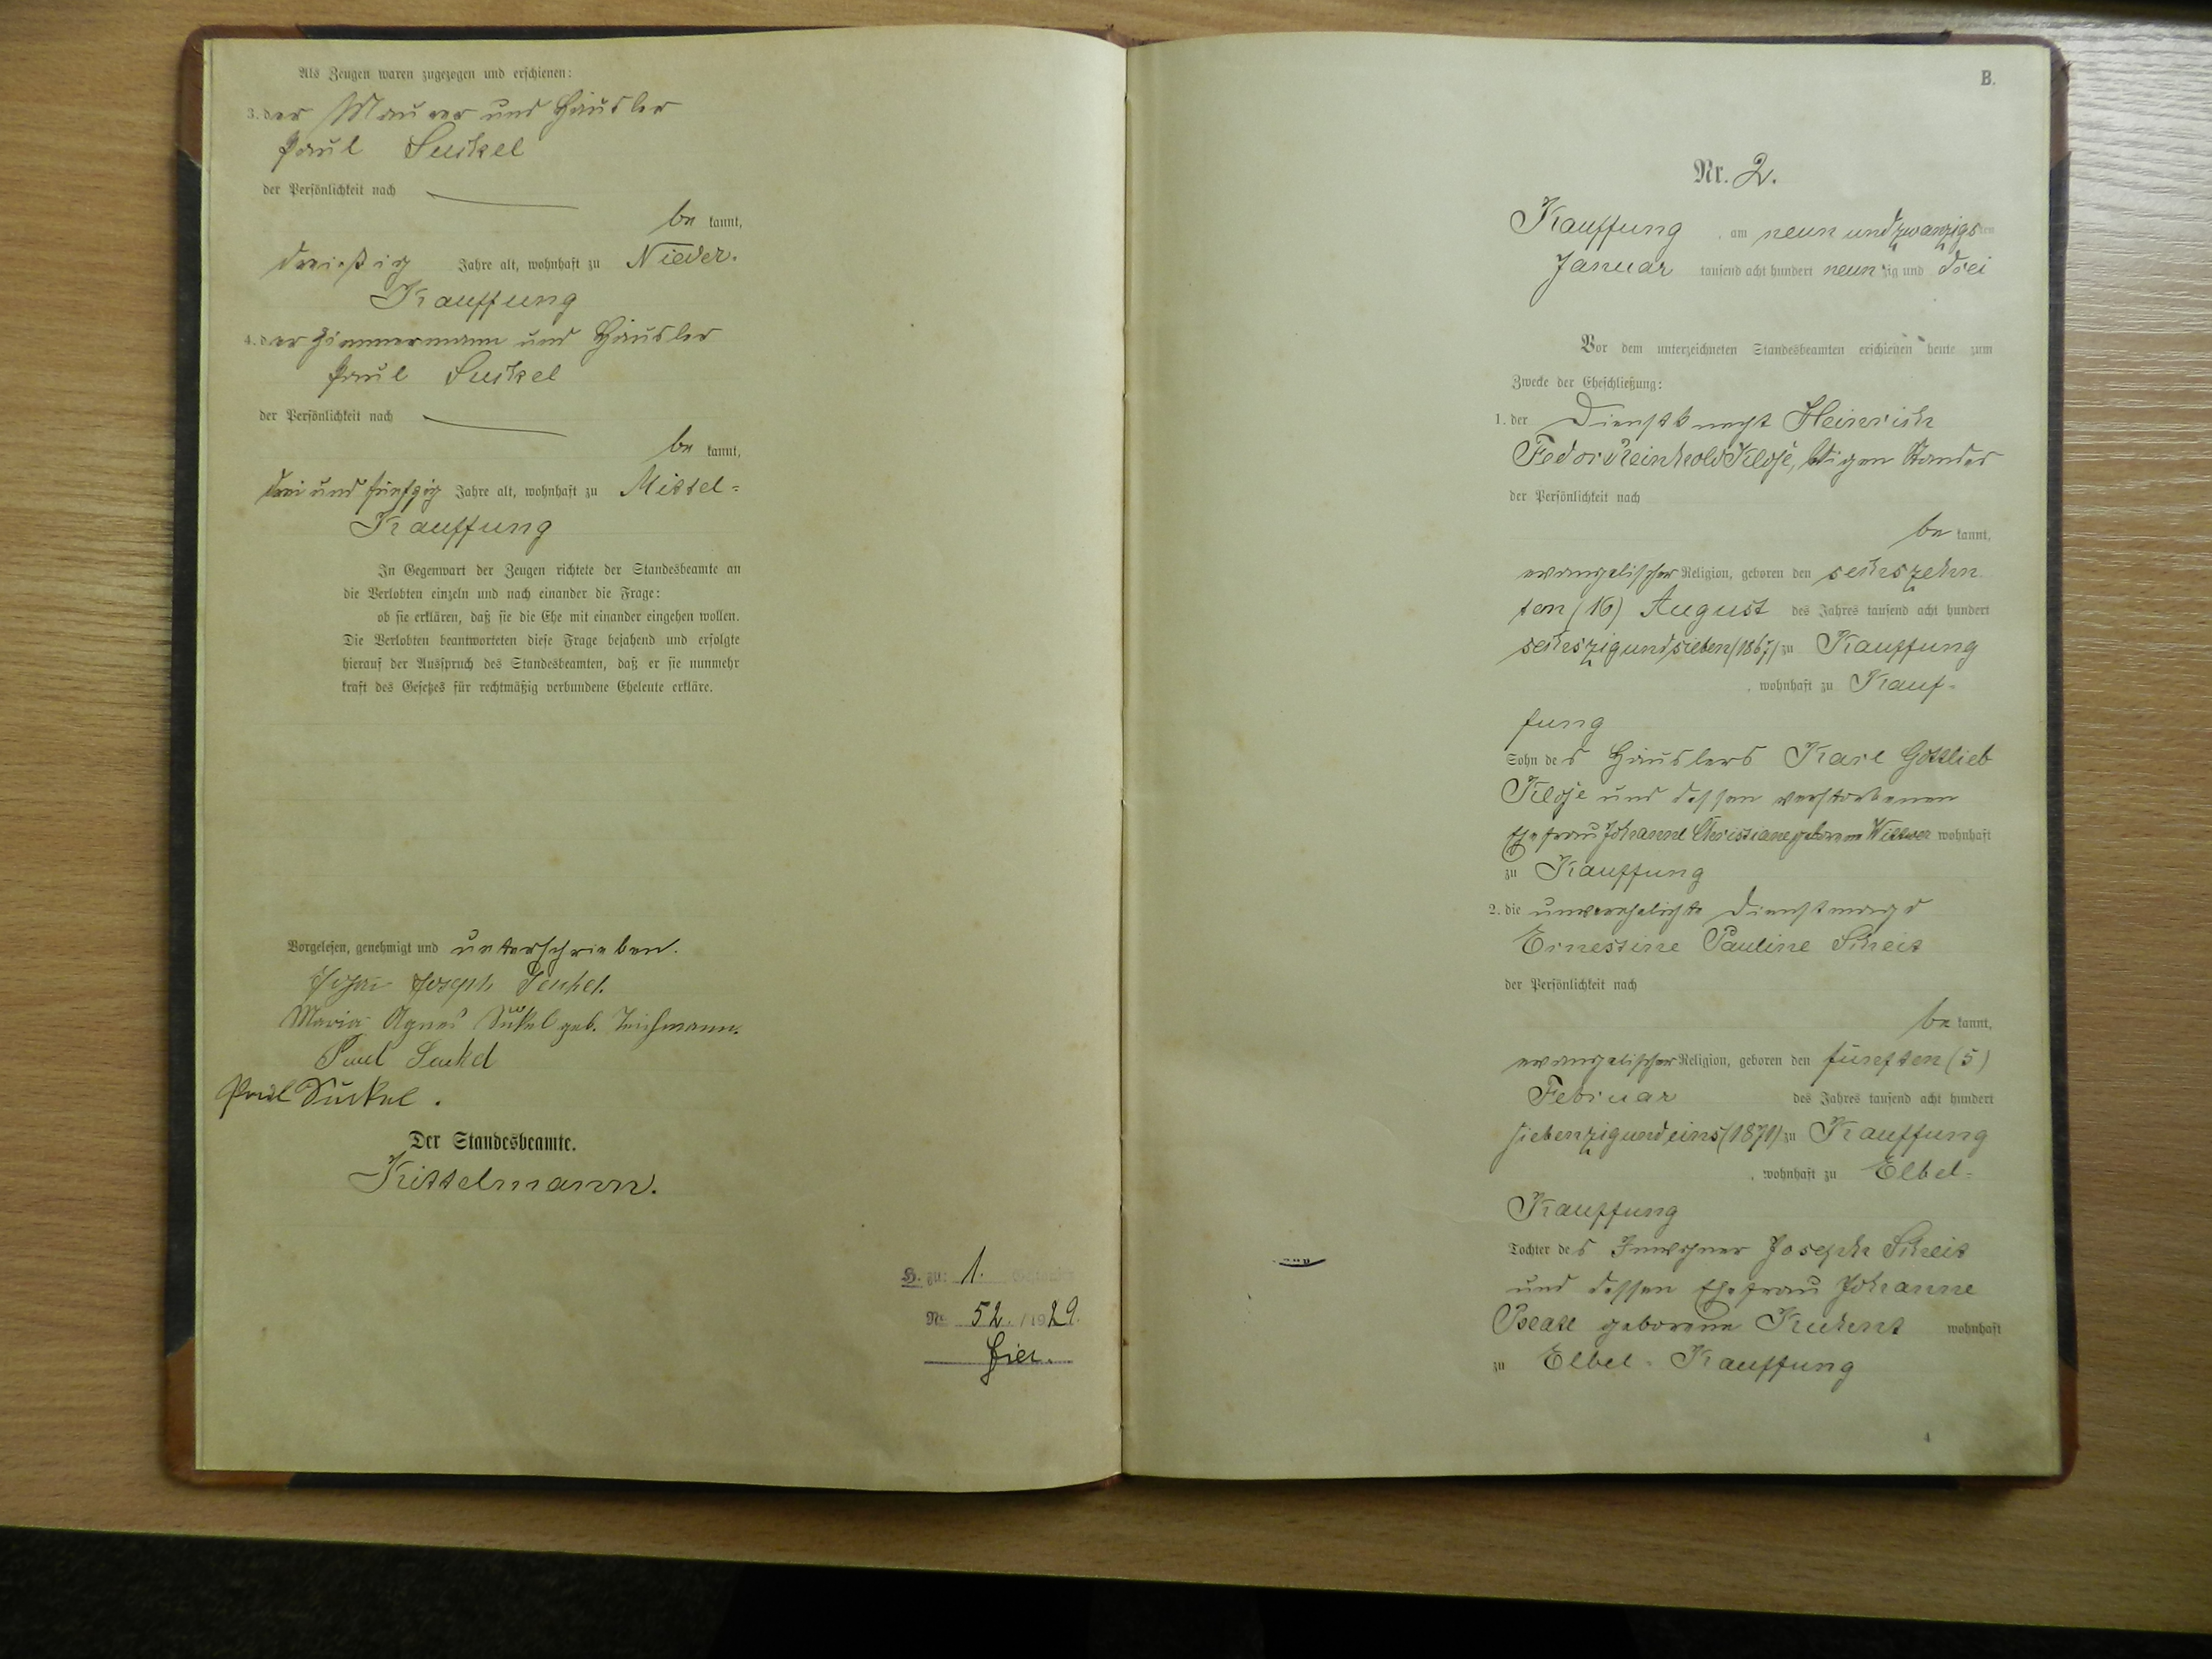 Als Zeugen waren zugezogen und erschienen:
3. der Maurer und Häusler
Paul Seukel
der Persönlichkeit nach
be kannt,
dreißig Jahre alt, wohnhaft zu Nieder-
Kauffung
4. der Zimmermann und Häusler
Paul Seukel
der Persönlichkeit nach
be kannt,
drei und fünfzig Jahre alt, wohnhaft zu Mittel=
Kauffung
In Gegenwart der Zeugen richtete der Standesbeamte an
die Verlobten einzeln und nach einander die Frage:
ob sie erklären, daß sie die Ehe mit einander eingehen wollen.
Die Verlobten beantworteten diese Frage bejahend und erfolgte
hierauf der Ausspruch des Standesbeamten, daß er sie nunmehr
kraft des Gesetzes für rechtmäßig verbundene Eheleute erkläre.
Vorgelesen, genehmigt und unterschrieben.
Joseph Seukel.
Maria Agnes geb. Teichmann.
Paul Seukel
Paul
Der Standesbeamte.
Kittelmann.
H. zu: 1.
No 52. /1929.
B.
Nr. 2.
Kauffung am neun und zwanzigsten
Januar tausend acht hundert neunzig und drei
Vor dem unterzeichneten Standesbeamten erschienen heute zum
Zwecke der Eheschließung:
1. der Dienstknecht Heinrich
Fedor Reinhold Klose, ledigen Standes
der Persönlichkeit nach
be kannt,
evangelischer Religion, geboren den sechszehn
ten (16) August des Jahres tausend acht hundert
sechszig und sieben (1867) zu Kauffung
, wohnhaft zu Kauf-
fung
Sohn des Häuslers Karl Gottlieb
Klose und dessen verstorbenen
Ehefrau Johanne Christiane geborenen Wittwer wohnhaft
zu Kauffung
2. die unverehelichte Dienstmagd
Ernestine Pauline Scheit
der Persönlichkeit nach
be kannt,
evangelischer Religion, geboren den fünften (5)
Februar des Jahres tausend acht hundert
siebenzig und eins (1871) zu Kauffung
, wohnhaft zu Elbel=
Kauffung
Tochter des Inwohner Joseph Scheit
und dessen Ehefrau Johanne
Beate geborene Kuhnt wohnhaft
zu Elbel-Kauffung
4